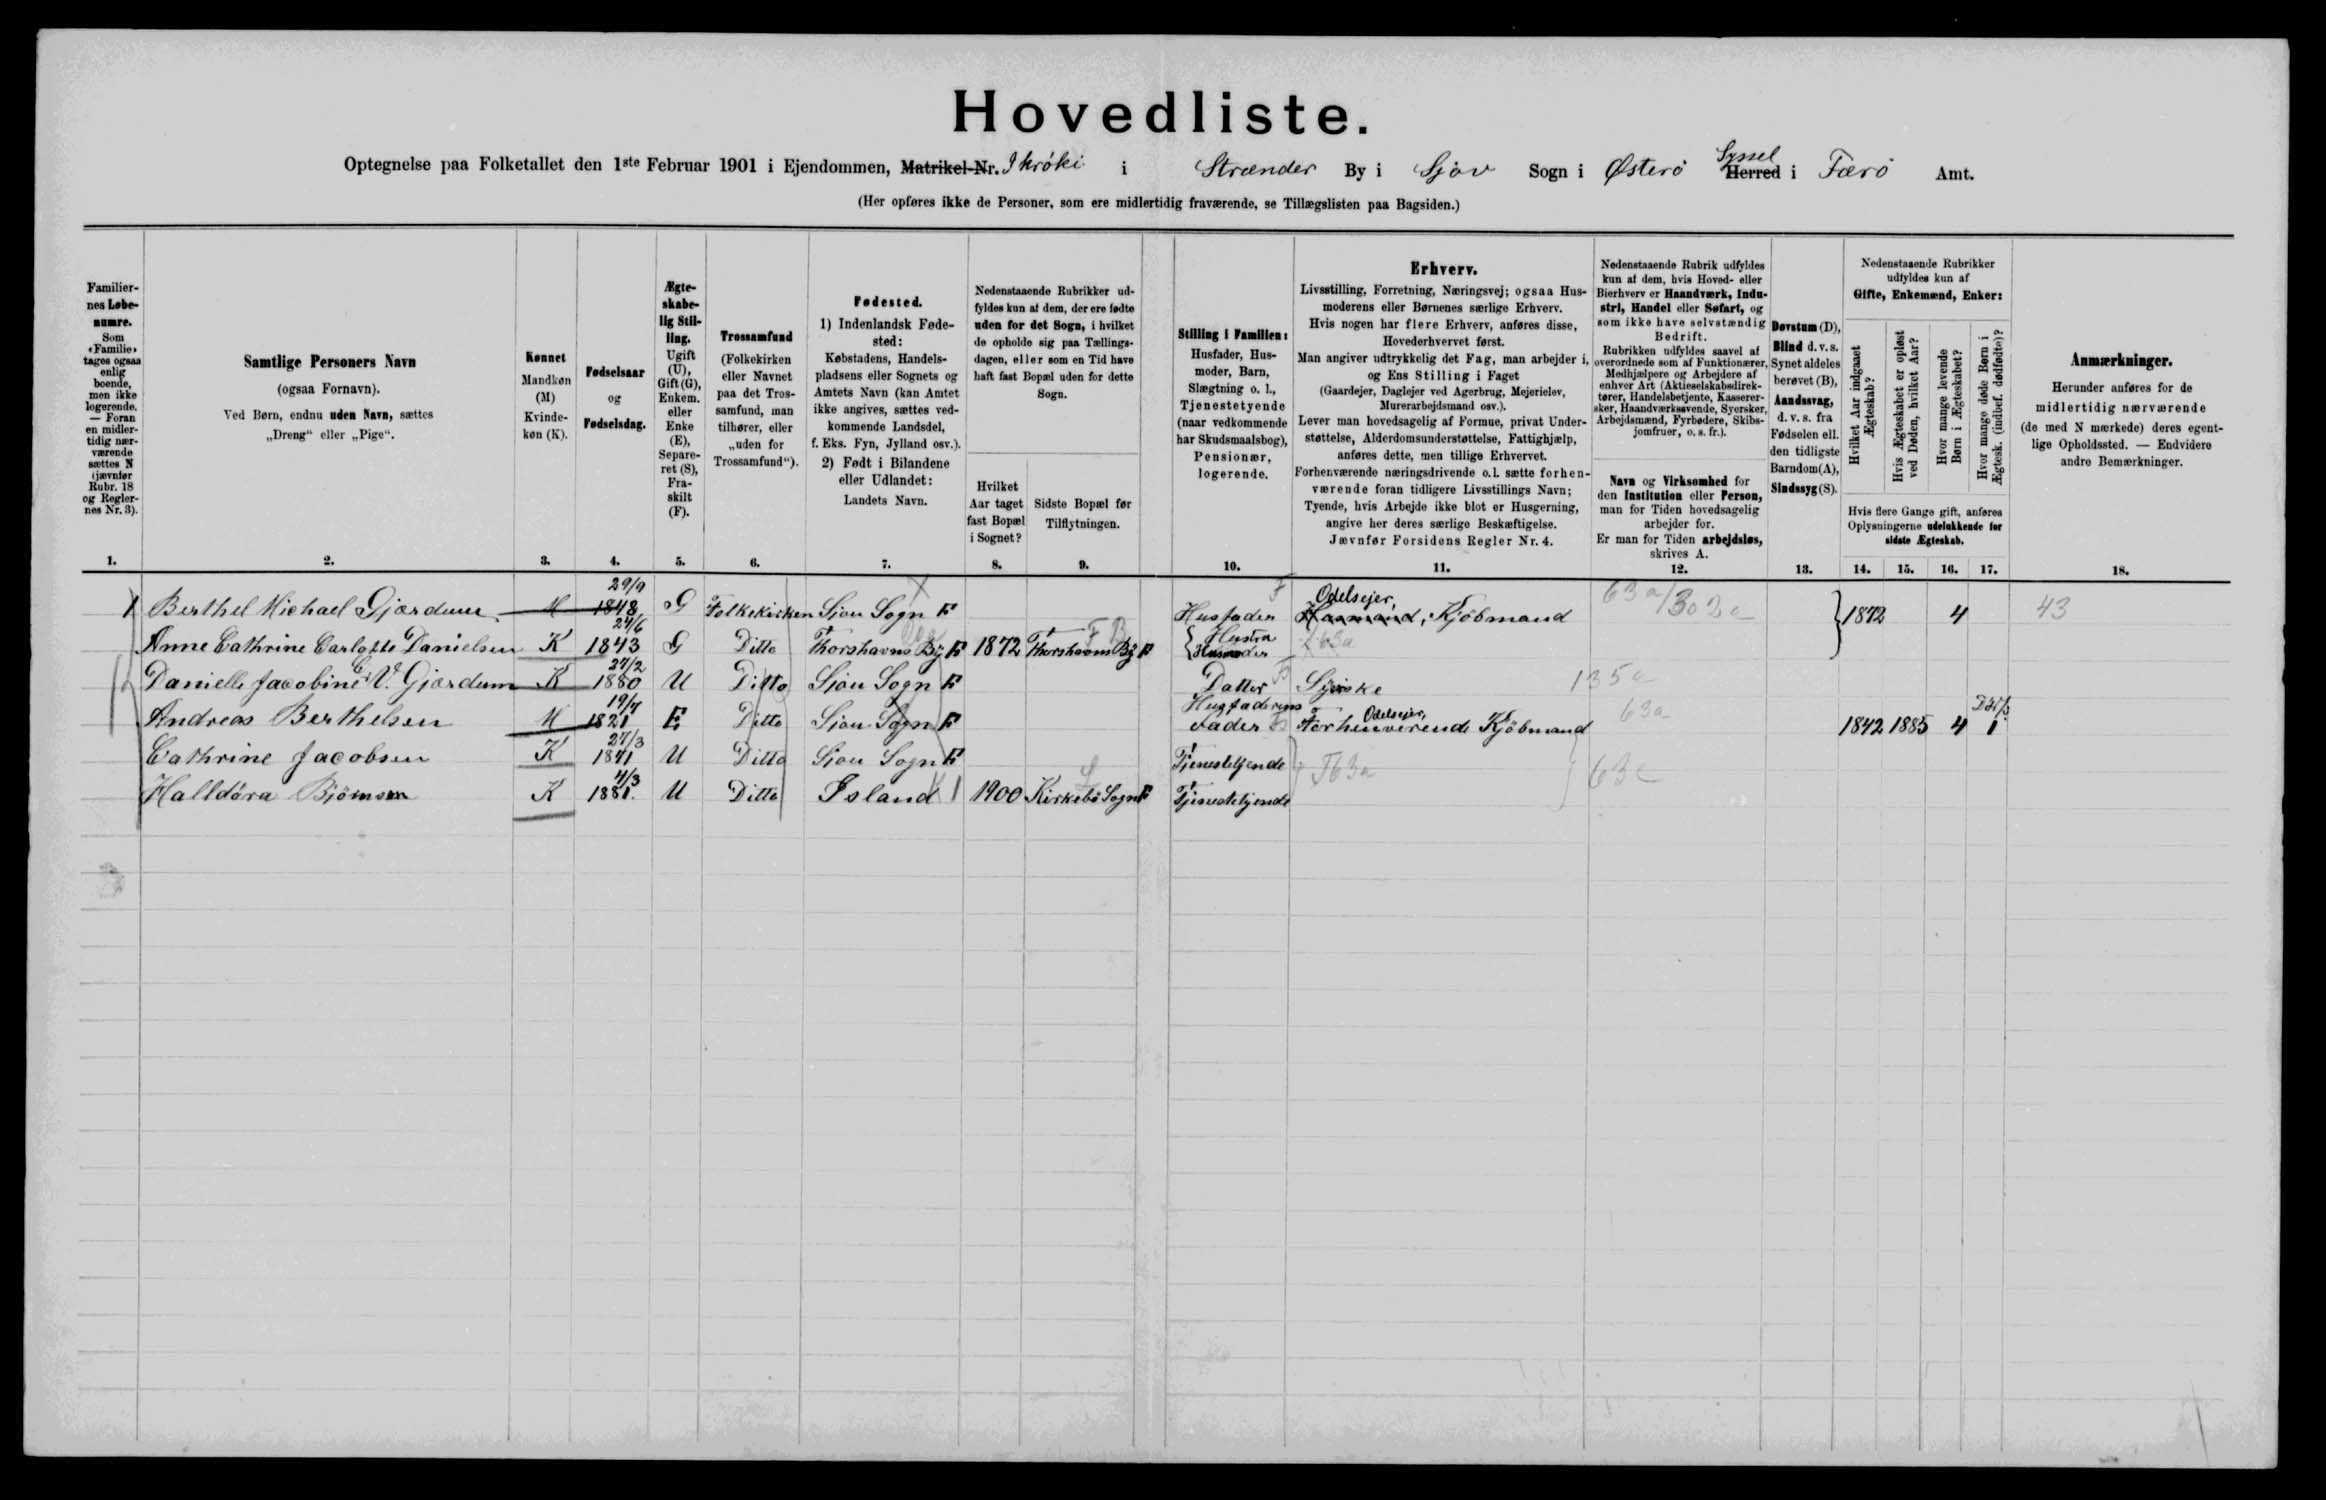 Hovedliste.
Optegnelse paa Folketallet den 1ste Februar 1901 i Ejendommen, Matrikel-Nr. Ikróki i Strænder By i Sjov Sogn i Østerö Herred Syssel i Færö Amt.
(Her opføres ikke de Personer, som ere midlertidig fraværende, se Tillægslisten paa Bagsiden.)
Familier-
nes Løbe-
numre.
Som
«Familie»
tages ogsaa
enlig
boende,
men ikke
logerende.
— Foran
en midler-
tidig nær-
værende
sættes N
(jævnfør
Rubr. 18
og Regler-
nes Nr. 3).
1.
Samtlige Personers Navn
(ogsaa Fornavn).
Ved Børn, endnu uden Navn, sættes
„Dreng“ eller „Pige“.
2.
Kønnet
Mandkøn
(M)
Kvinde-
køn (K).
3.
Fødselsaar
og
Fødselsdag.
4.
Ægte-
skabe-
lig Stil-
ling.
Ugift
(U),
Gift (G),
Enkem.
eller
Enke
(E),
Separe-
ret (S),
Fra-
skilt
(F).
5.
Trossamfund
(Folkekirken
eller Navnet
paa det Tros-
samfund, man
tilhører, eller
„uden for
Trossamfund“).
6.
Fødested.
1) Indenlandsk Føde-
sted:
Købstadens, Handels-
pladsens eller Sognets og
Amtets Navn (kan Amtet
ikke angives, sættes ved-
kommende Landsdel,
f. Eks. Fyn, Jylland osv.).
2) Født i Bilandene
eller Udlandet:
Landets Navn.
7.
Nedenstaaende Rubrikker ud-
fyldes kun af dem, der ere fødte
uden for det Sogn, i hvilket
de opholde sig paa Tællings-
dagen, eller som en Tid have
haft fast Bopæl uden for dette
Sogn.
Hvilket
Aar taget
fast Bopæl
i Sognet?
8.
Sidste Bopæl før
Tilflytningen.
9.
Stilling i Familien:
Husfader, Hus-
moder, Barn,
Slægtning o. l.,
Tjenestetyende
(naar vedkommende
har Skudsmaalsbog),
Pensionær,
logerende.
10.
Erhverv.
Livsstilling, Forretning, Næringsvej; ogsaa Hus-
moderens eller Børnenes særlige Erhverv.
Hvis nogen har flere Erhverv, anføres disse,
Hovederhvervet først.
Man angiver udtrykkelig det Fag, man arbejder i,
og Ens Stilling i Faget
(Gaardejer, Daglejer ved Agerbrug, Mejerielev,
Murerarbejdsmand osv.).
Lever man hovedsagelig af Formue, privat Under-
støttelse, Alderdomsunderstøttelse, Fattighjælp,
anføres dette, men tillige Erhvervet.
Forhenværende næringsdrivende o.l. sætte forhen-
værende foran tidligere Livsstillings Navn;
Tyende, hvis Arbejde ikke blot er Husgerning,
angive her deres særlige Beskæftigelse.
Jævnfør Forsidens Regler Nr. 4.
11.
Nedenstaaende Rubrik udfyldes
kun af dem, hvis Hoved- eller
Bierhverv er Haandværk, Indu-
stri, Handel eller Søfart, og
som ikke have selvstændig
Bedrift.
Rubrikken udfyldes saavel af
overordnede som af Funktionærer,
Medhjælpere og Arbejdere af
enhver Art (Aktieselskabsdirek-
tører, Handelsbetjente, Kasserer-
sker, Haandværkssvende, Syersker,
Arbejdsmænd, Fyrbødere, Skibs-
jomfruer, o. s. fr.).
Navn og Virksomhed for
den Institution eller Person,
man for Tiden hovedsagelig
arbejder for.
Er man for Tiden arbejdsløs,
skrives A.
12.
Døvstum (D),
Blind d. v. s.
Synet aldeles
berøvet (B),
Aandssvag,
d. v. s. fra
Fødselen ell.
den tidligste
Barndom (A),
Sindssyg (S).
13.
Nedenstaaende Rubrikker
udfyldes kun af
Gifte, Enkemænd, Enker:
Hvilket Aar indgaaet
Ægteskab?
Hvis Ægteskabet er opløst
ved Døden, hvilket Aar?
Hvor mange levende
Børn i Ægteskabet?
Hvor mange døde Børn i
Ægtesk. (indbef. dødfødte)?
Hvis flere Gange gift, anføres
Oplysningerne udelukkende for
sidste Ægteskab.
14. 15. 16. 17.
Anmærkninger.
Herunder anføres for de
midlertidig nærværende
(de med N mærkede) deres egent-
lige Opholdssted. — Endvidere
andre Bemærkninger.
18.
1 Berthel Michael Gjærdum M 29/9 1848 G Folkekirken Sjov Sogn F Husfader Odelsejer, Kjöbmand 63a/302a 1872 4 43
Anne Cathrine Carlotte Danielsen K 24/6 1843 G Ditto Thorshavns By F 1872 Thorshavns By F Hustru Husmoder
Danielle Jacobine C. V. Gjærdum K 27/2 1880 U Ditto Sjov Sogn F Datter Syerske 135a
Andreas Berthelsen M 19/7 1821 E Ditto Sjov Sogn F Husfaderens Fader Forhenværende Odelsejer, Kjöbmand 63a 1842 1885 4 1
Cathrine Jacobsen K 27/3 1841 U Ditto Sjov Sogn F Tjenestetyende
Halldóra Björnson K 4/3 1881. U Ditto Island 1900 Kirkebö Sogn F Tjenestetyende F63a 63c